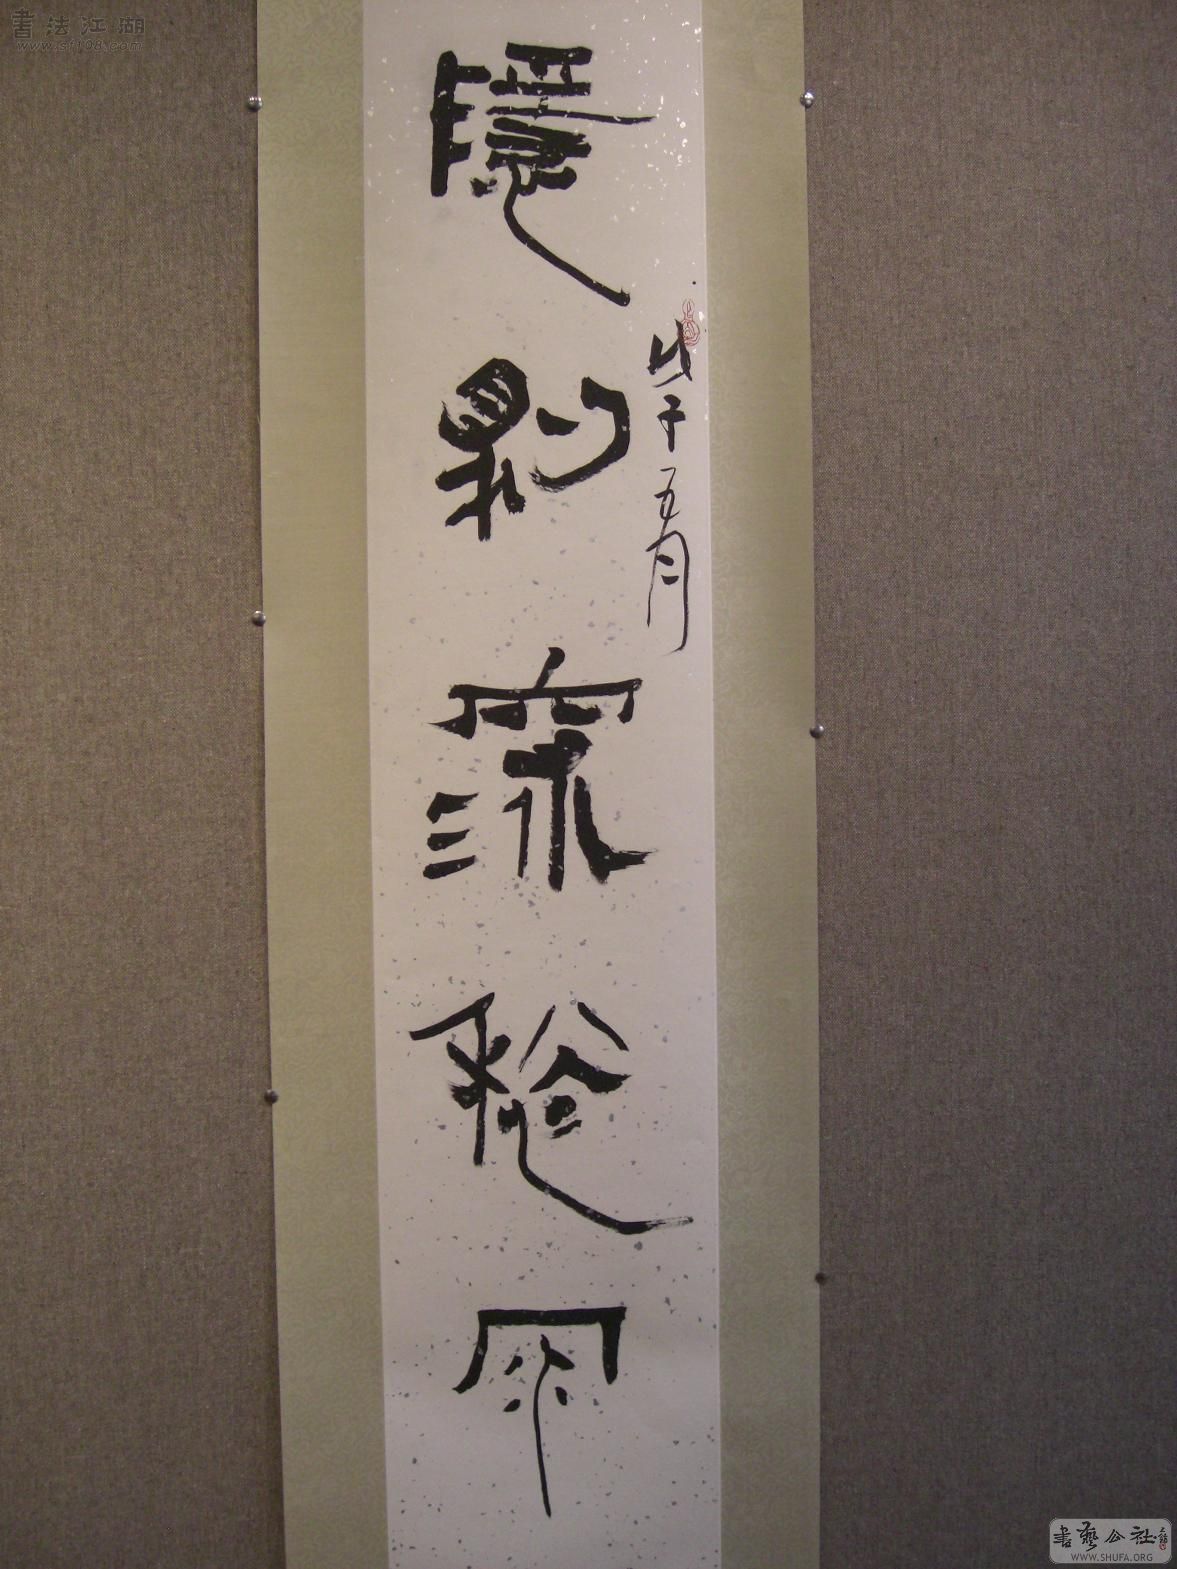 書法江湖
www.sf108.com
隱豹深愁雨
戊子五月
書藝公社
WWW.SHUFA.ORG